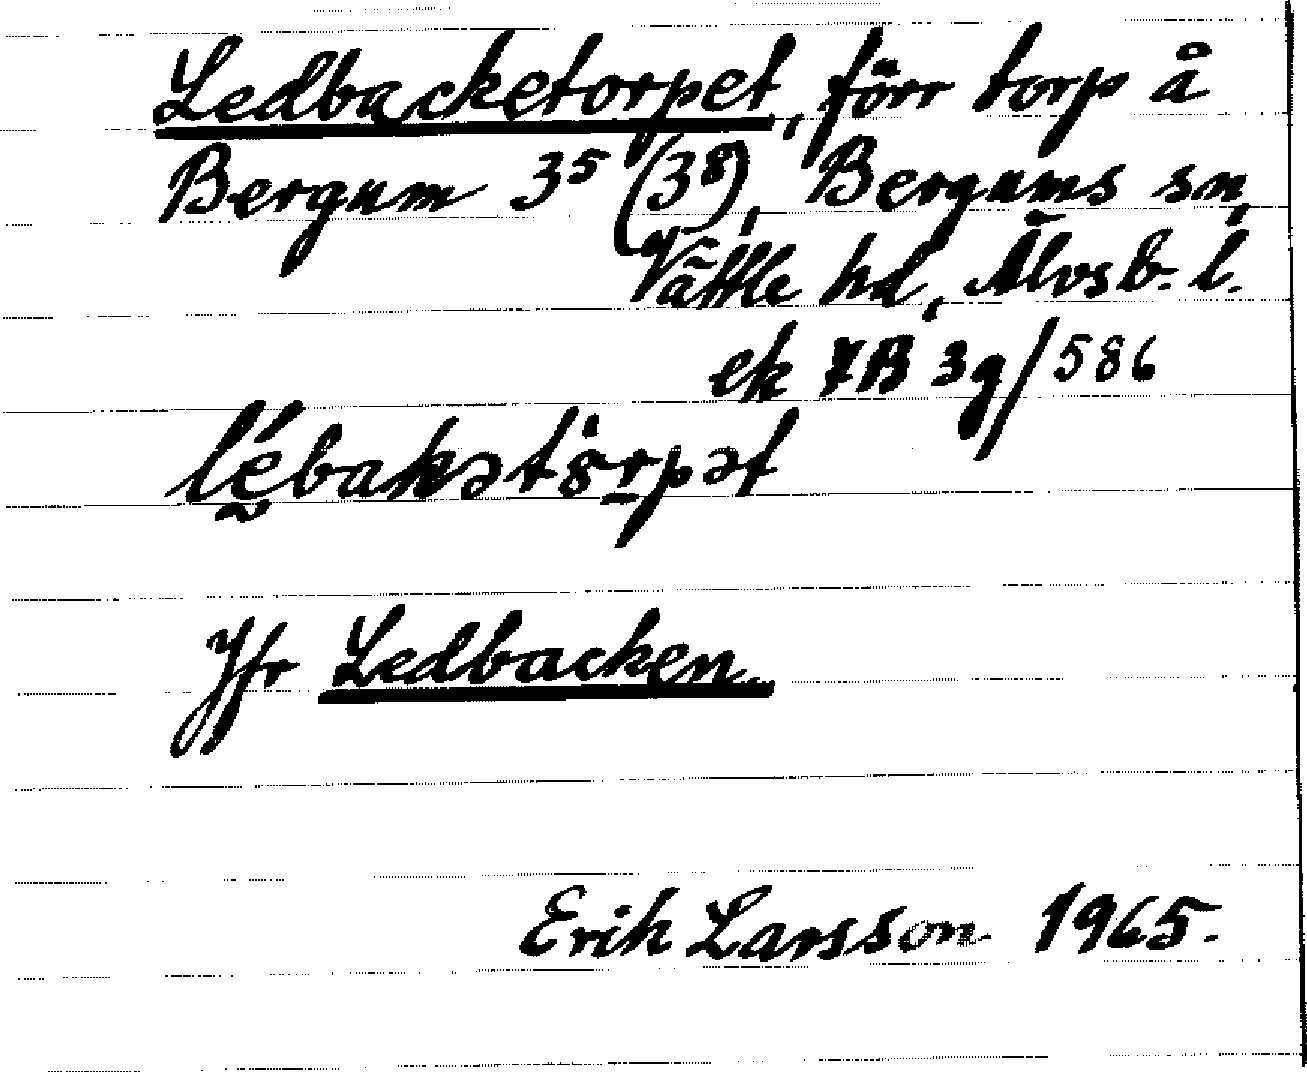 Ledbacketorpet, förr torp å
Bergum 3⁵ (3⁸), Bergums sn,
Vättle hd, Älvsb. l.
ek 7B 3g/586
lébakətȯrpət
Jfr Ledbacken.
Erik Larsson 1965.